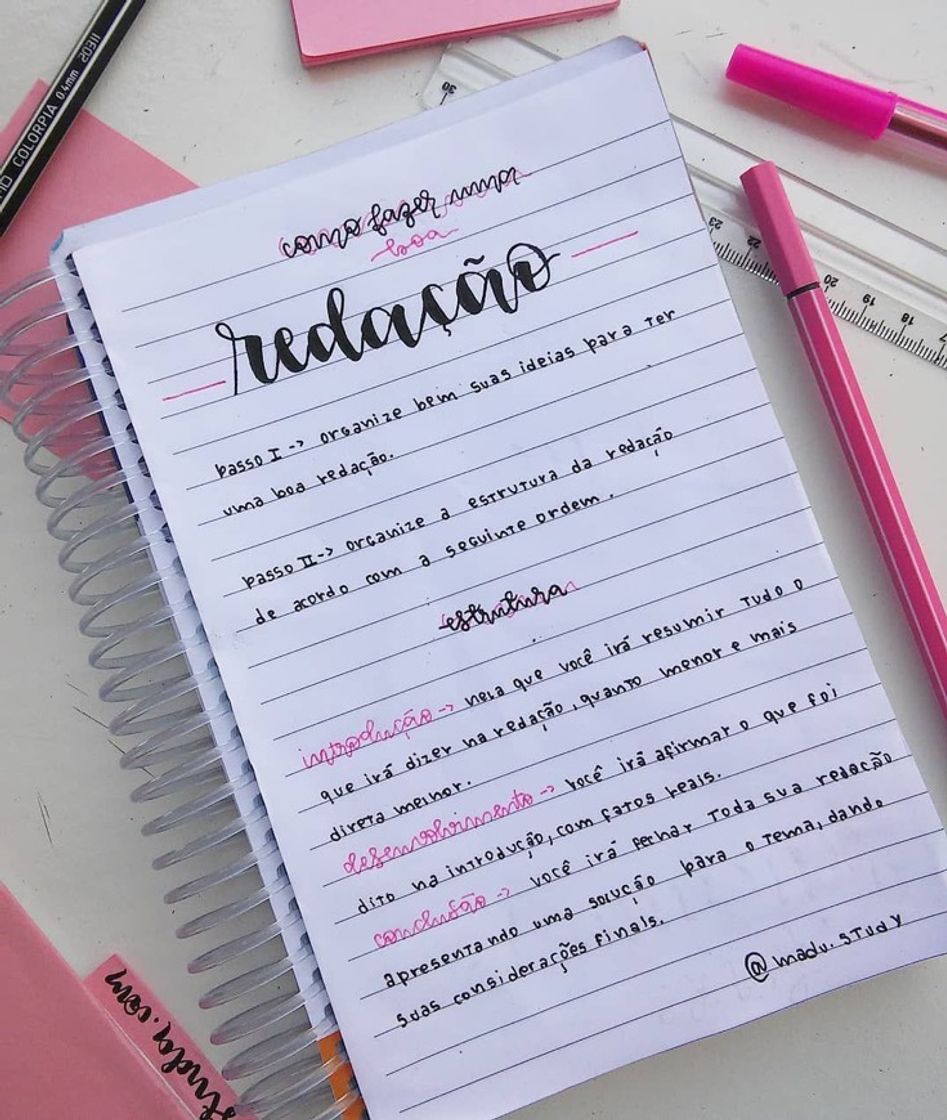 como fazer uma
boa
redação
passo I -> organize bem suas ideias para ter
uma boa redação.
passo II -> organize a estrutura da redação
de acordo com a seguinte ordem.
estrutura
introdução -> nela que você irá resumir tudo o
que irá dizer na redação, quanto menor e mais
direta melhor.
desenvolvimento -> você irá afirmar o que foi
dito na introdução, com fatos reais.
conclusão -> você irá fechar toda sua redação
apresentando uma solução para o tema, dando
suas considerações finais.
@madu.study
COLORPIA 0.4mm 20311
30
23
22
20
19
18